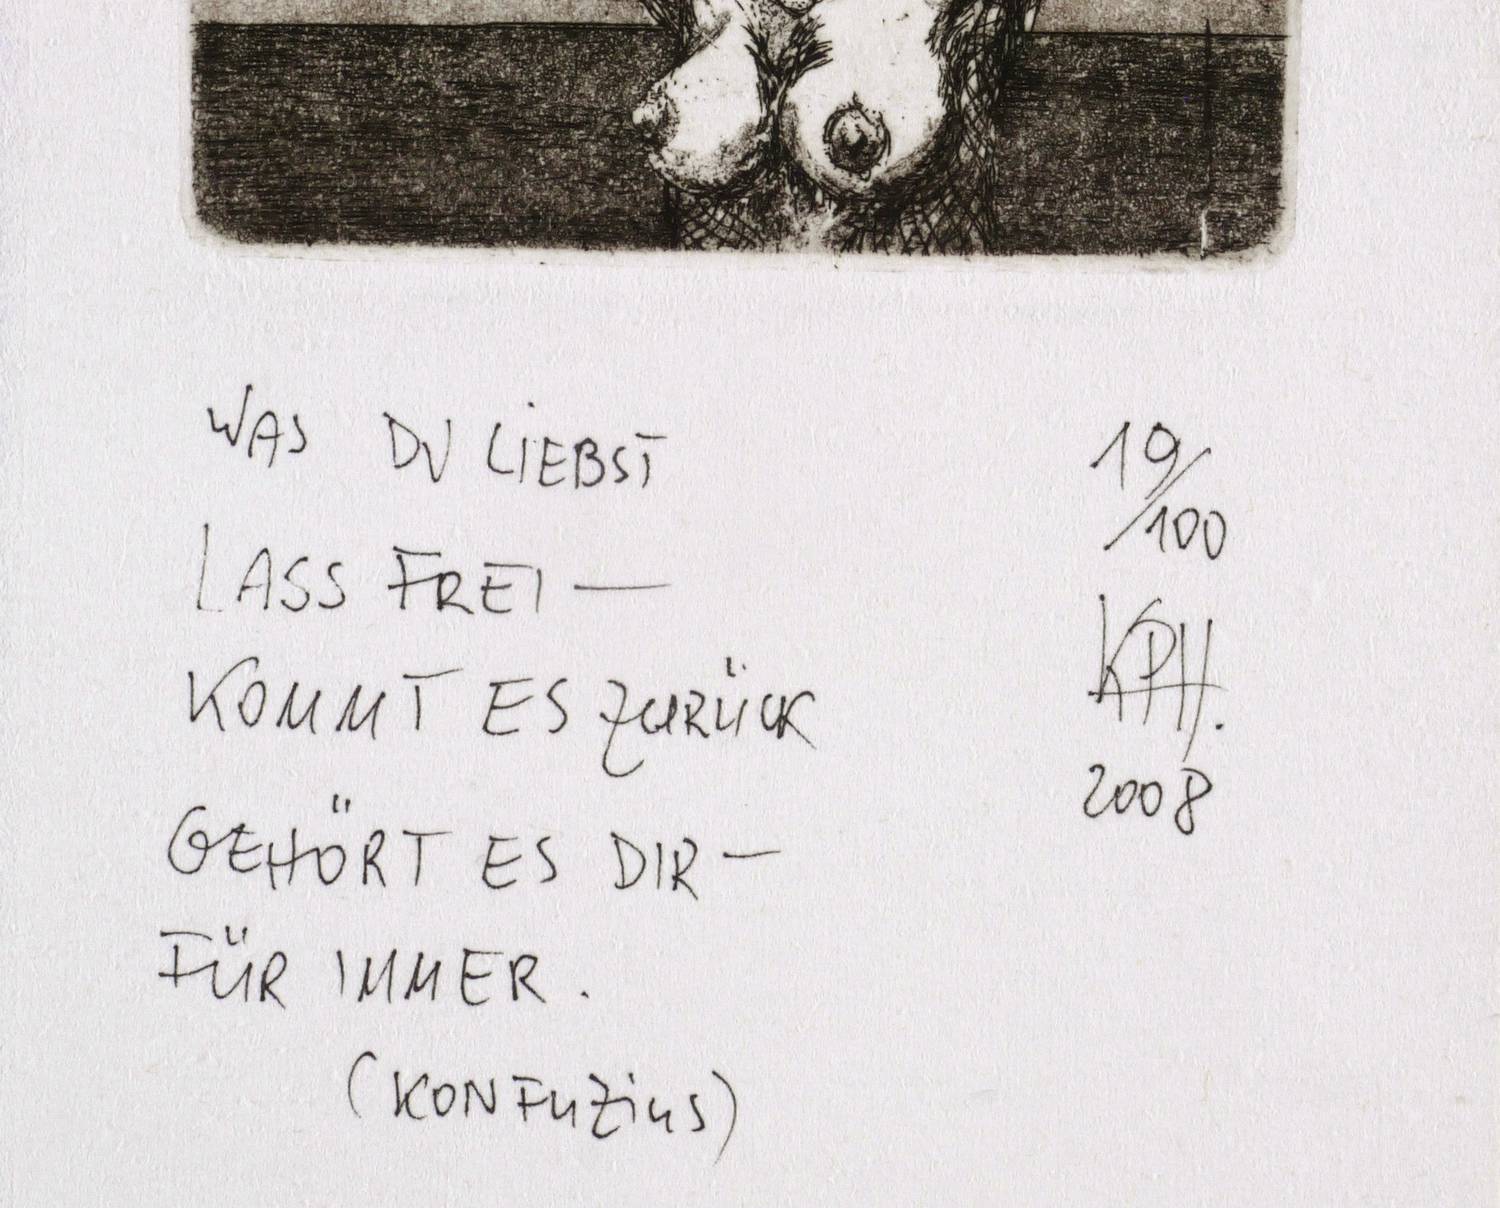 WAS DU LIEBST
LASS FREI —
KOMMT ES ZURÜCK
GEHÖRT ES DIR —
FÜR IMMER.
(KONFUZIUS)
19/100
KPH.
2008